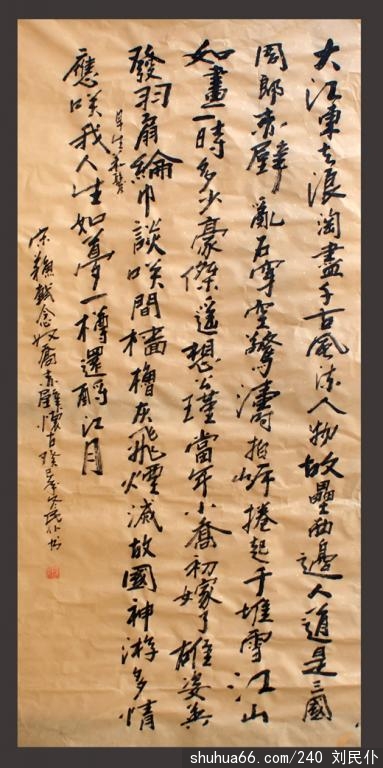 大江東去浪淘盡千古風流人物故壘西邊人道是三國
周郎赤壁亂石穿空驚濤拍岸捲起千堆雪江山
如畫一時多少豪傑遙想公瑾當年小喬初嫁了雄姿英
發羽扇綸巾談咲間檣櫓灰飛煙滅故國神游多情
應咲我人生如夢一樽還酹江月
早生華髮
宋蘇軾念奴嬌赤壁懷古癸巳年民仆书
shuhua66.com/240 刘民仆